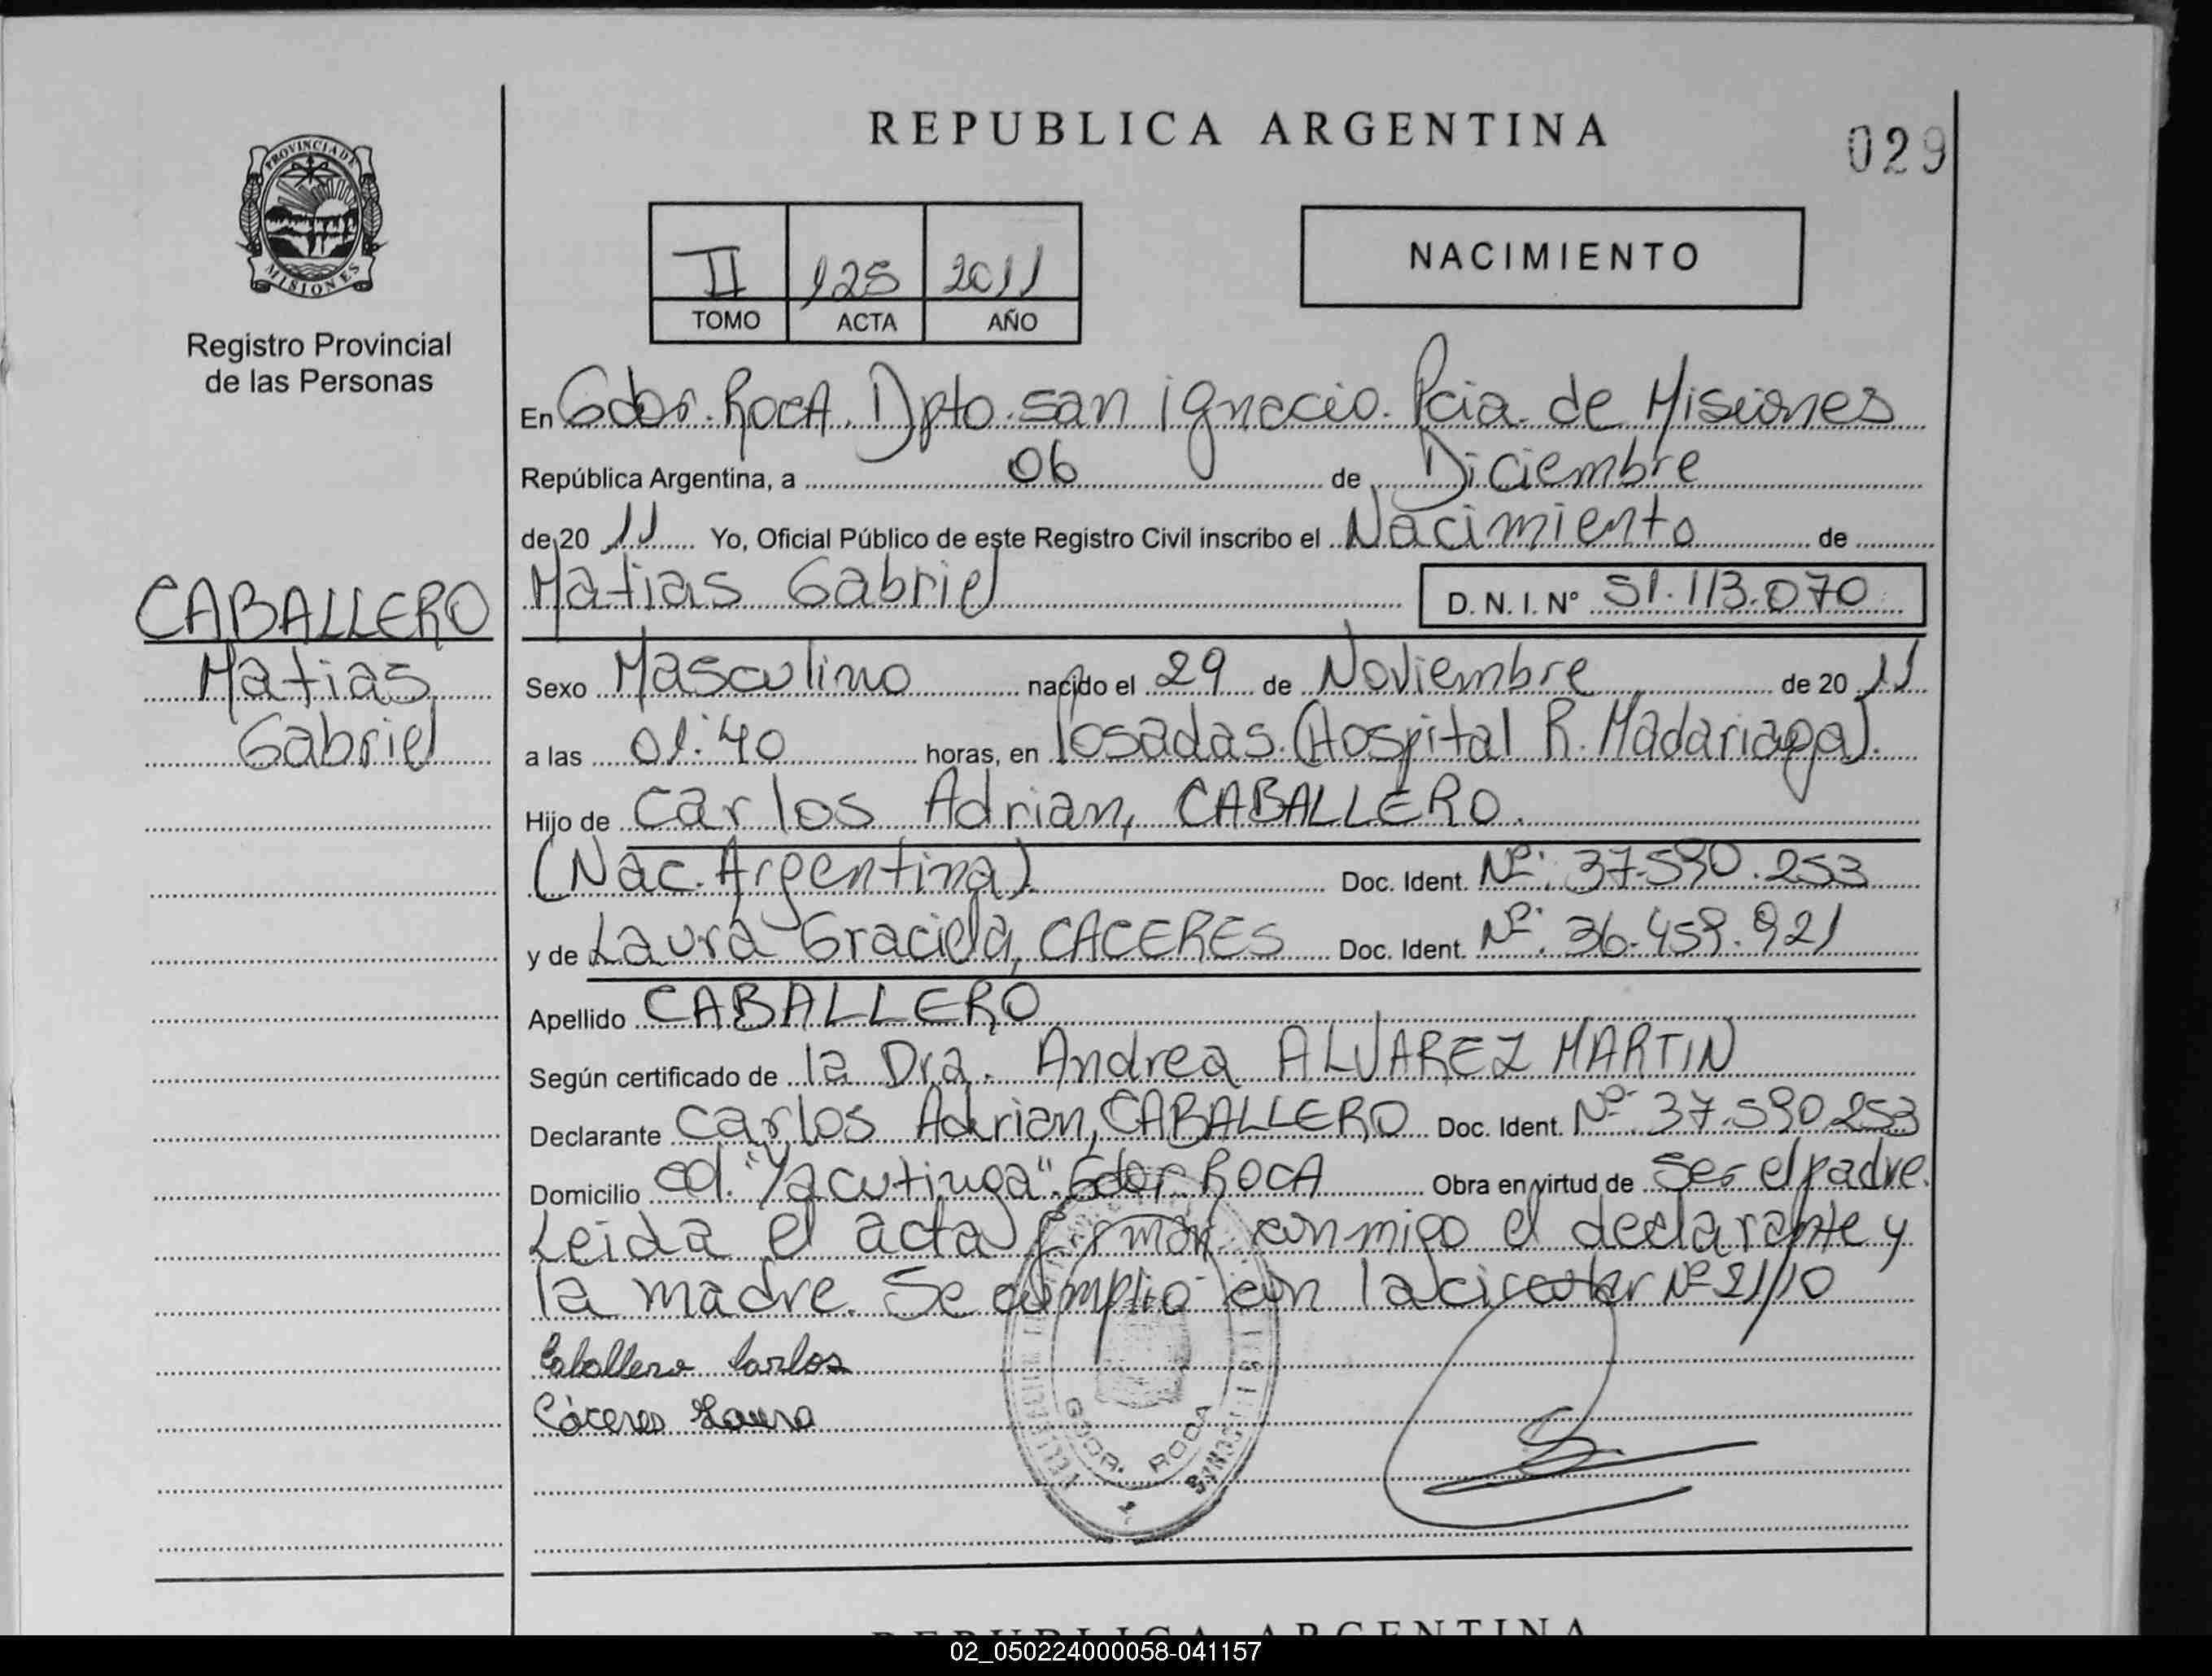 REPUBLICA ARGENTINA
029
PROVINCIA DE
MISIONES
Registro Provincial
de las Personas
II 125 2011
TOMO ACTA AÑO
NACIMIENTO
En Gdor. ROCA. Dpto. san ignacio. Pcia. de Misiones
República Argentina, a 06 de Diciembre
de 20 11 Yo, Oficial Público de este Registro Civil inscribo el Nacimiento de
Matias Gabriel D. N. I. N° 51.113.070
CABALLERO
Matias
Gabriel
Sexo Masculino nacido el 29 de Noviembre de 20 11
a las 01:40 horas, en Posadas. (Hospital R. Madariaga).
Hijo de Carlos Adrian, CABALLERO.
(Nac. Argentina) Doc. Ident. Nº: 37.590.253
y de Laura Graciela, CACERES Doc. Ident. Nº: 36.459.921
Apellido CABALLERO
Según certificado de la Dra. Andrea ALVAREZ MARTIN
Declarante Carlos Adrian, CABALLERO Doc. Ident. Nº 37.590.253
Domicilio Col. "Yacutinga". Gdor ROCA Obra en virtud de Ser el padre.
Leida el acta firman conmigo el declarante y
la madre. Se cumplio con la circular Nº 21/10
Caballero Carlos
Cáceres Laura
GDOR. ROCA
MISIONES
REPUBLICA ARGENTINA
02_050224000058-041157